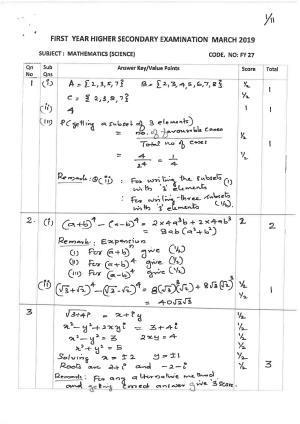 1/11
FIRST YEAR HIGHER SECONDARY EXAMINATION MARCH 2019
SUBJECT : MATHEMATICS (SCIENCE) CODE. NO: FY 27
Qn No Sub Qns Answer Key/Value Points Score Total
1 (i) A = {2,3,5,7} B = {2,3,4,5,6,7,8} ½
C = {2,3,5,7} ½ 1
(ii) 4 1 1
(iii) P(getting a subset of 3 elements)
= no. of favourable cases ½
Total no of cases
= 4/2⁴ = 1/4 ½ 1
Remark: : For writing the subsets
with '3' elements (1)
: For writing three subsets
with '3' elements (½)
2. (i) (a+b)⁴ − (a−b)⁴ = 2×4a³b + 2×4ab³ 2 2
= 8ab(a²+b²)
Remark: Expansion
(i) For (a+b)ⁿ give (½)
(ii) For (a+b)⁴ give (½)
(iii) For (a−b)⁴ give (½)
(ii) (√3+√2)⁴ − (√3−√2)⁴ = 8(√3)³(√2) + 8√3(√2)³ ½
= 40√3√2 ½ 1
3 √3+4i = x+iy
x²−y²+2xyi = 3+4i ½
x²−y² = 3 2xy = 4 ½
x²+y² = 5 ½
Solving x = ±2 y = ±1 ½
Roots are 2+i and −2−i ½ 3
Remarks: For any alternative method
and getting correct answer give '3' score.